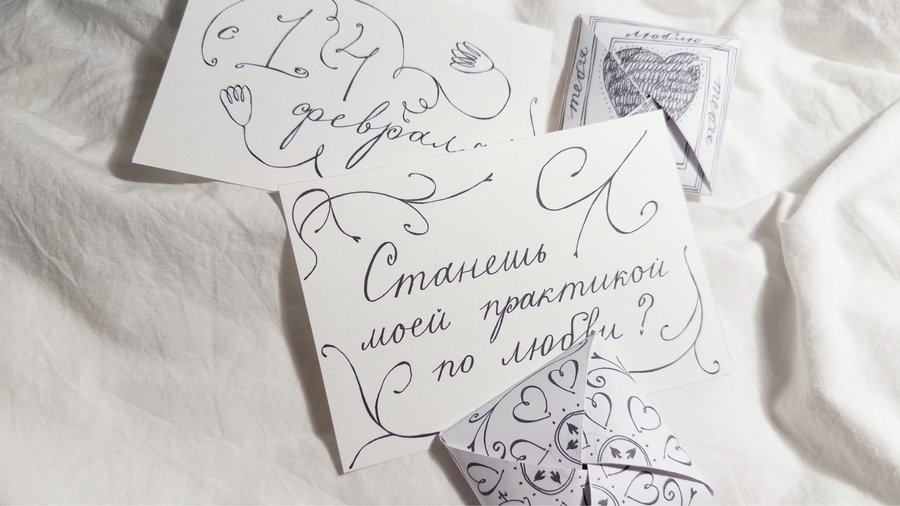 с 14
февраля
люблю
тебя
Станешь
моей практикой
по любви?